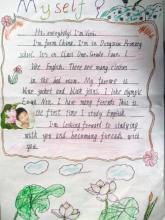 Myself
Hi, everybody! I'm Vivi.
I'm form China. I'm in Penguin Primary
school. I'm in Class One, Grade Four. I
like English. There are many classes
in the
blue jacket and black jeans. I like
I have many friends. This is
the first time I study English.
I'm looking forward to studying
with you and becoming friends with
you.